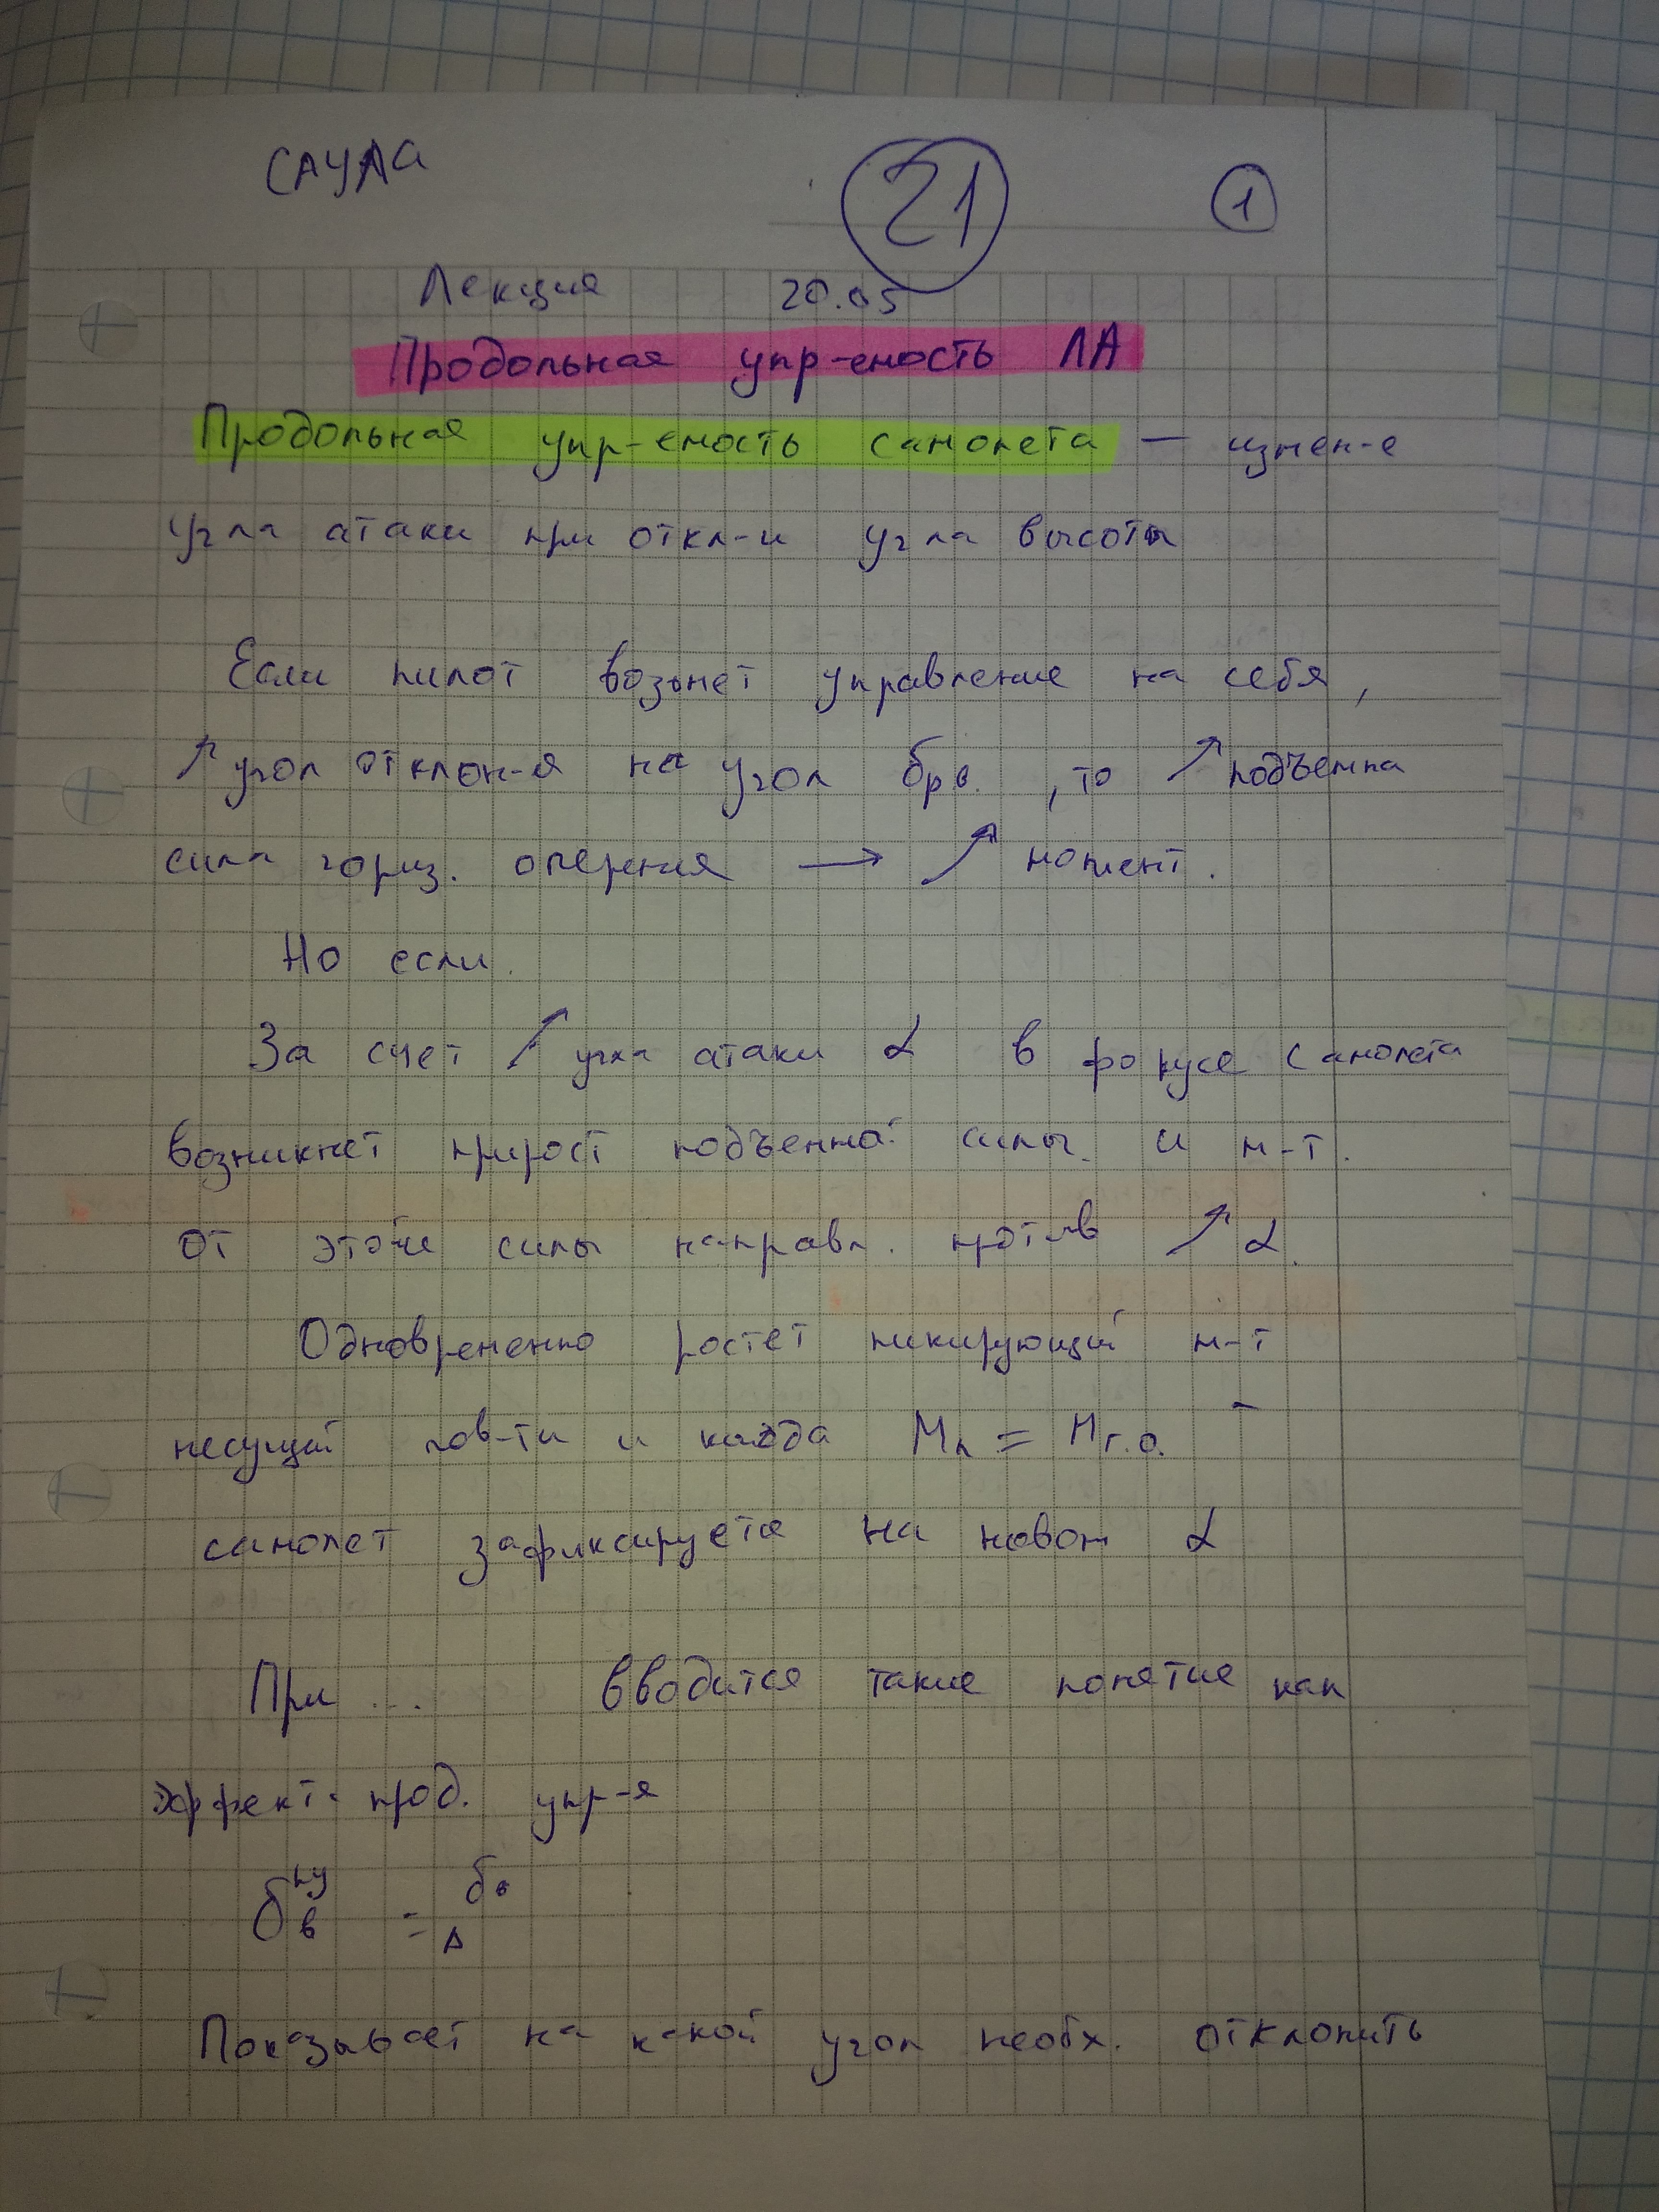 САУЛА
21
1
Лекция 20.05
Продольная упр-емость ЛА
Продольная упр-емость самолета — измен-е
угла атаки при откл-и угла высоты
Если пилот возьмет управление на себя,
↗ угол отклон-я на угол δрв. , то ↗ подъемна
сила гориз. оперения → ↗ момент.
Но если.
За счет ↗ угла атаки α в фокусе самолета
возникнет прирост подъемной силы. и м-т.
от этой силы направл. против ↗ α.
Одновременно ростет пикирующий м-т
несущей пов-ти и когда Mп = Mг.о. -
самолет зафиксируется на новом α
При ... вводится такие понятие как
эффект. прод. упр-я
δв пу = δв Δ
Показывает на какой угол необх. отклонить